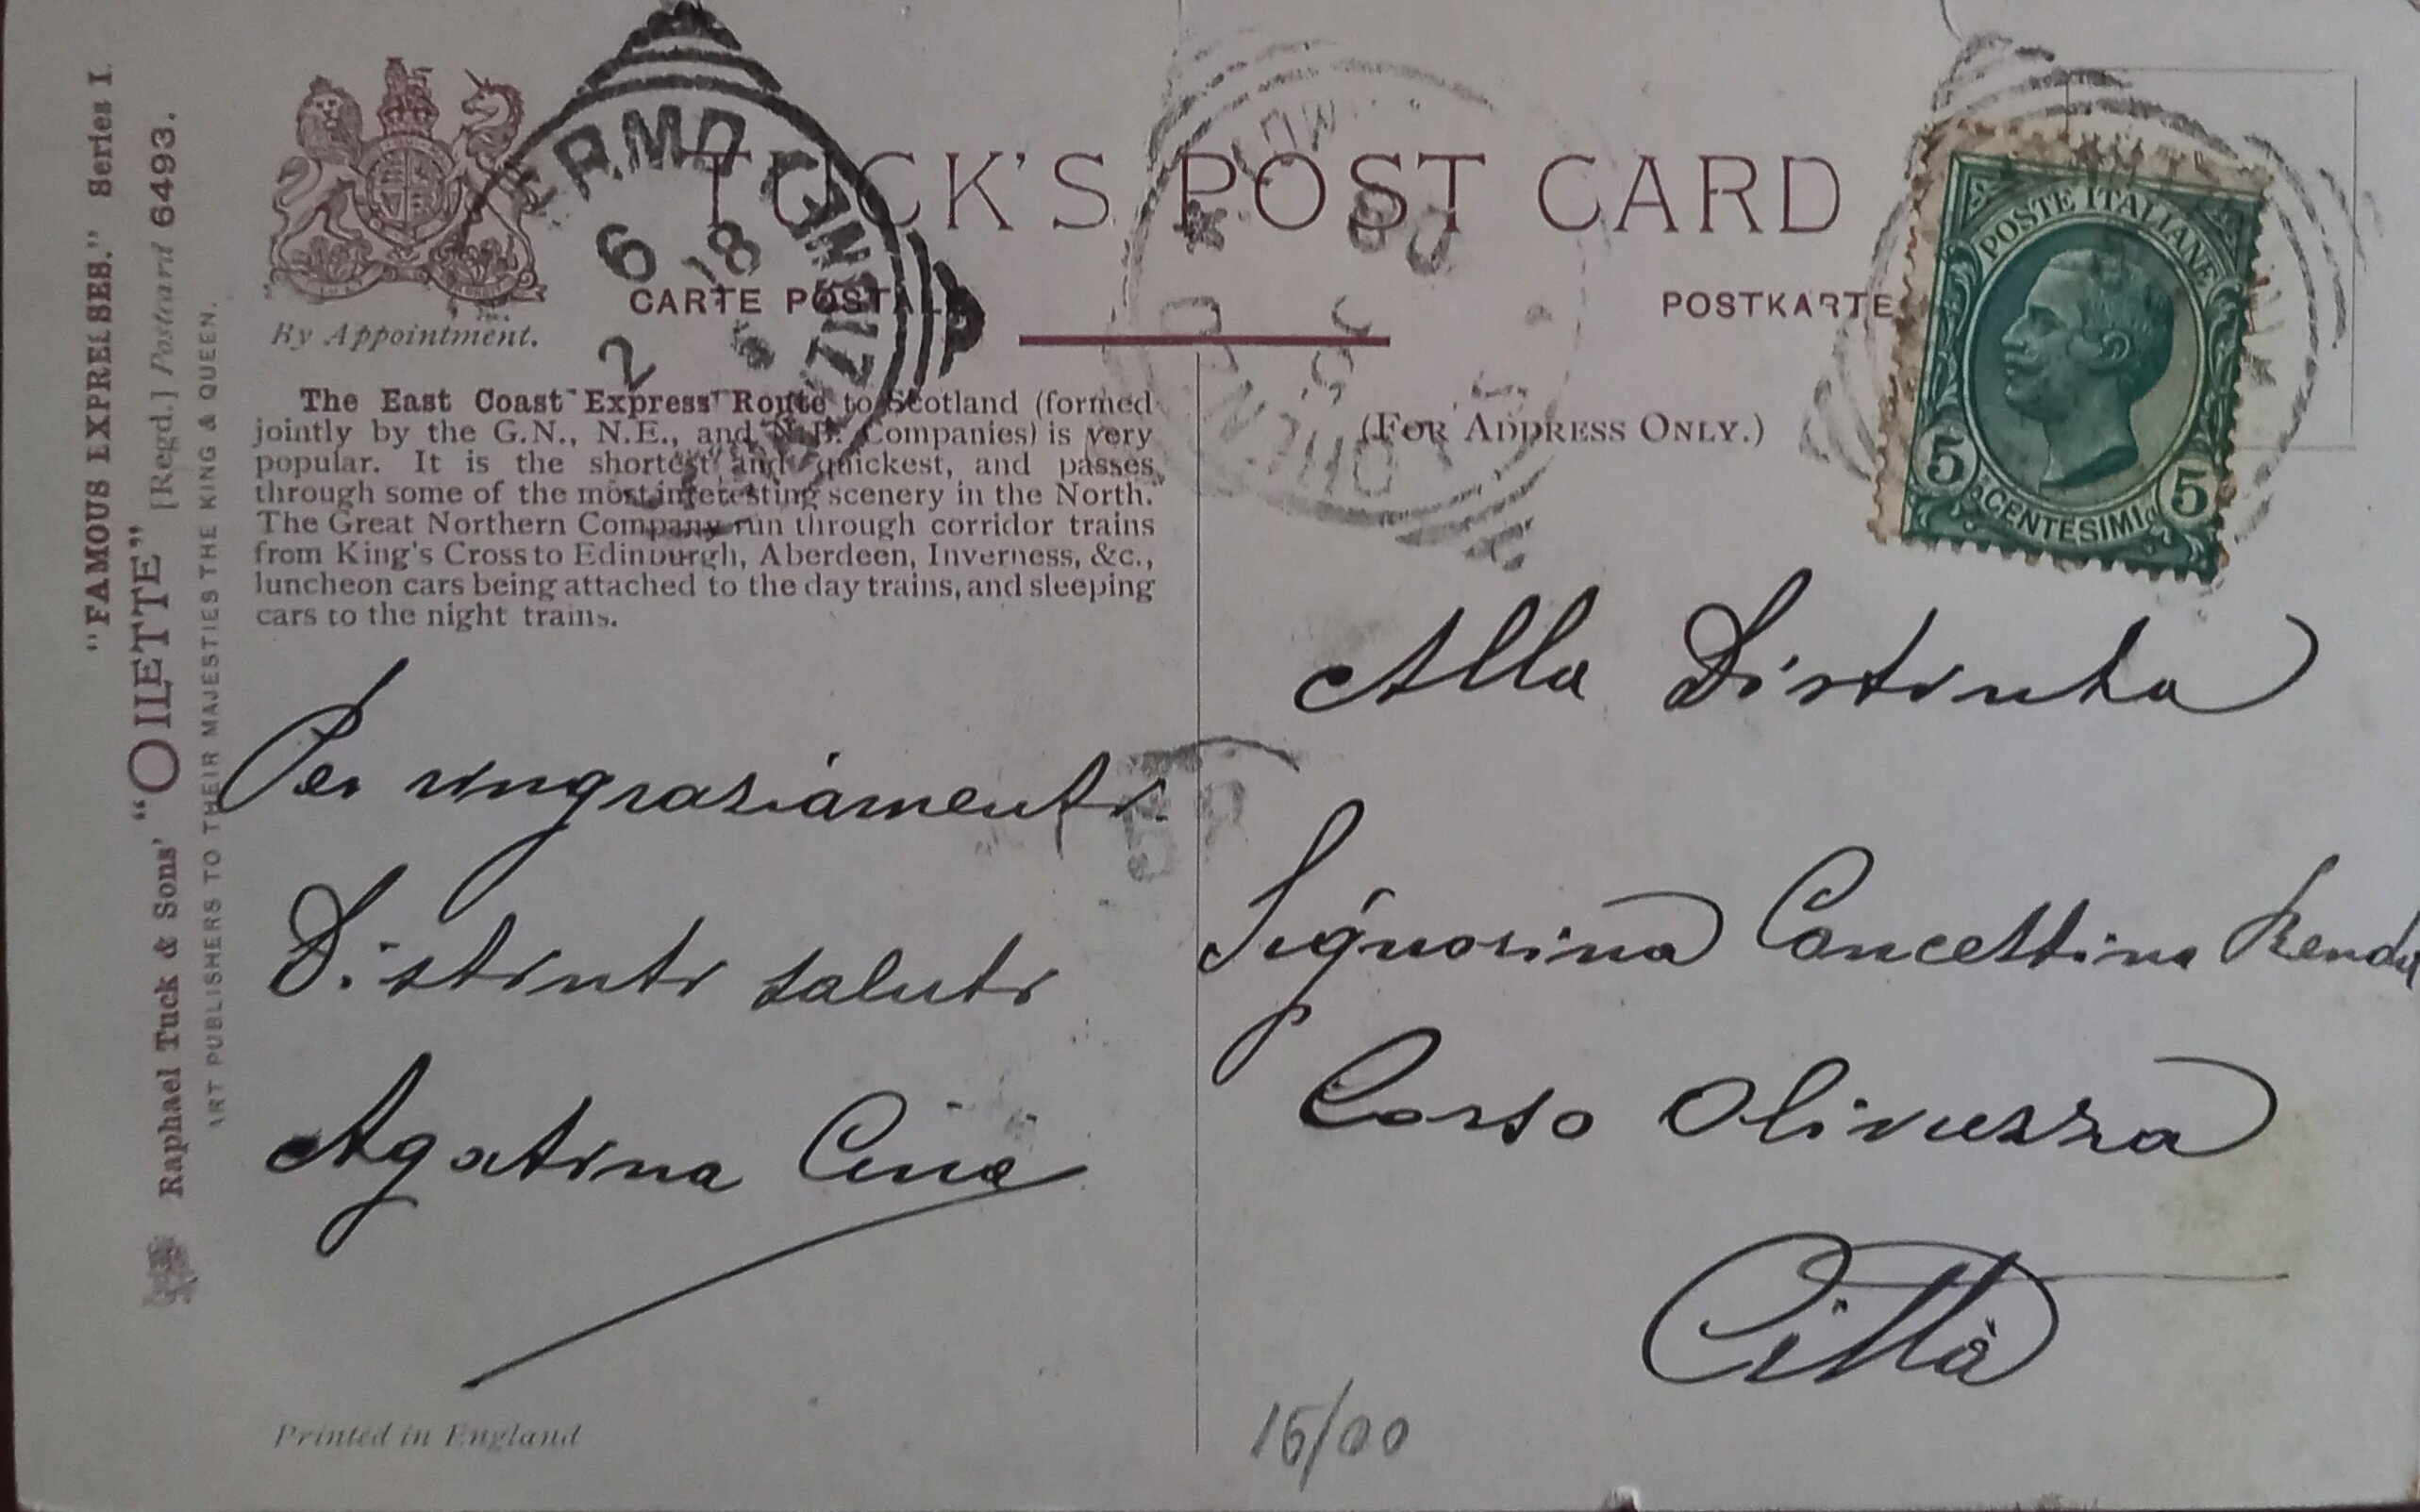 "FAMOUS EXPRESSES." Series I.
Raphael Tuck & Sons' "OILETTE" [Regd.] Postcard 6493.
ART PUBLISHERS TO THEIR MAJESTIES THE KING & QUEEN.
By Appointment.
TUCK'S POST CARD
CARTE POSTALE
POSTKARTE
(FOR ADDRESS ONLY.)
6 18
2
POSTE ITALIANE
5 CENTESIMI 5
The East Coast Express Route to Scotland (formed
jointly by the G.N., N.E., and N.B. Companies) is very
popular. It is the shortest and quickest, and passes
through some of the most interesting scenery in the North.
The Great Northern Company run through corridor trains
from King's Cross to Edinburgh, Aberdeen, Inverness, &c.,
luncheon cars being attached to the day trains, and sleeping
cars to the night trains.
Per ringraziamenti
Distinti saluti
Agatina Cinà
Alla Distinta
Signorina Concettina Renda
Corso Olivuzza
Città
Printed in England
15/00